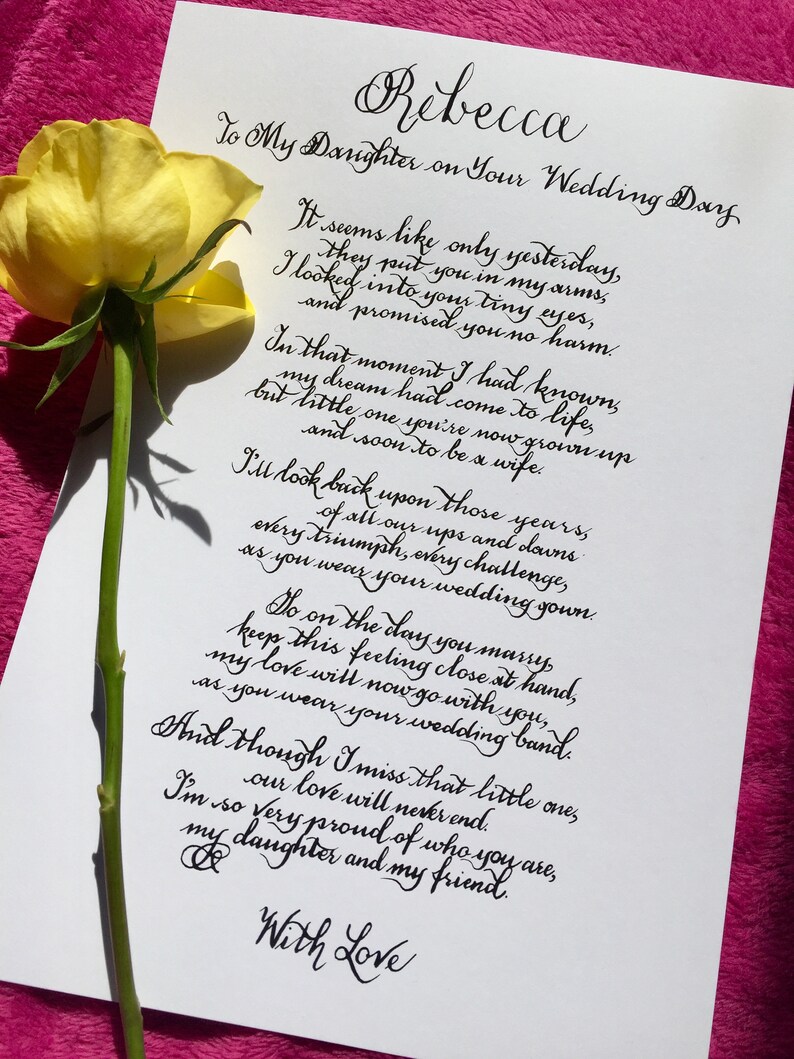 Rebecca
To My Daughter on Your Wedding Day
It seems like only yesterday,
they put you in my arms,
I looked into your tiny eyes,
and promised you no harm.
In that moment I had known,
my dream had come to life,
but little one you're now grown up
and soon to be a wife.
I'll look back upon those years,
of all our ups and downs
every triumph, every challenge,
as you wear your wedding gown.
So on the day you marry,
keep this feeling close at hand,
my love will now go with you,
as you wear your wedding band.
And though I miss that little one,
our love will never end.
I'm so very proud of who you are,
my daughter and my friend.
With Love